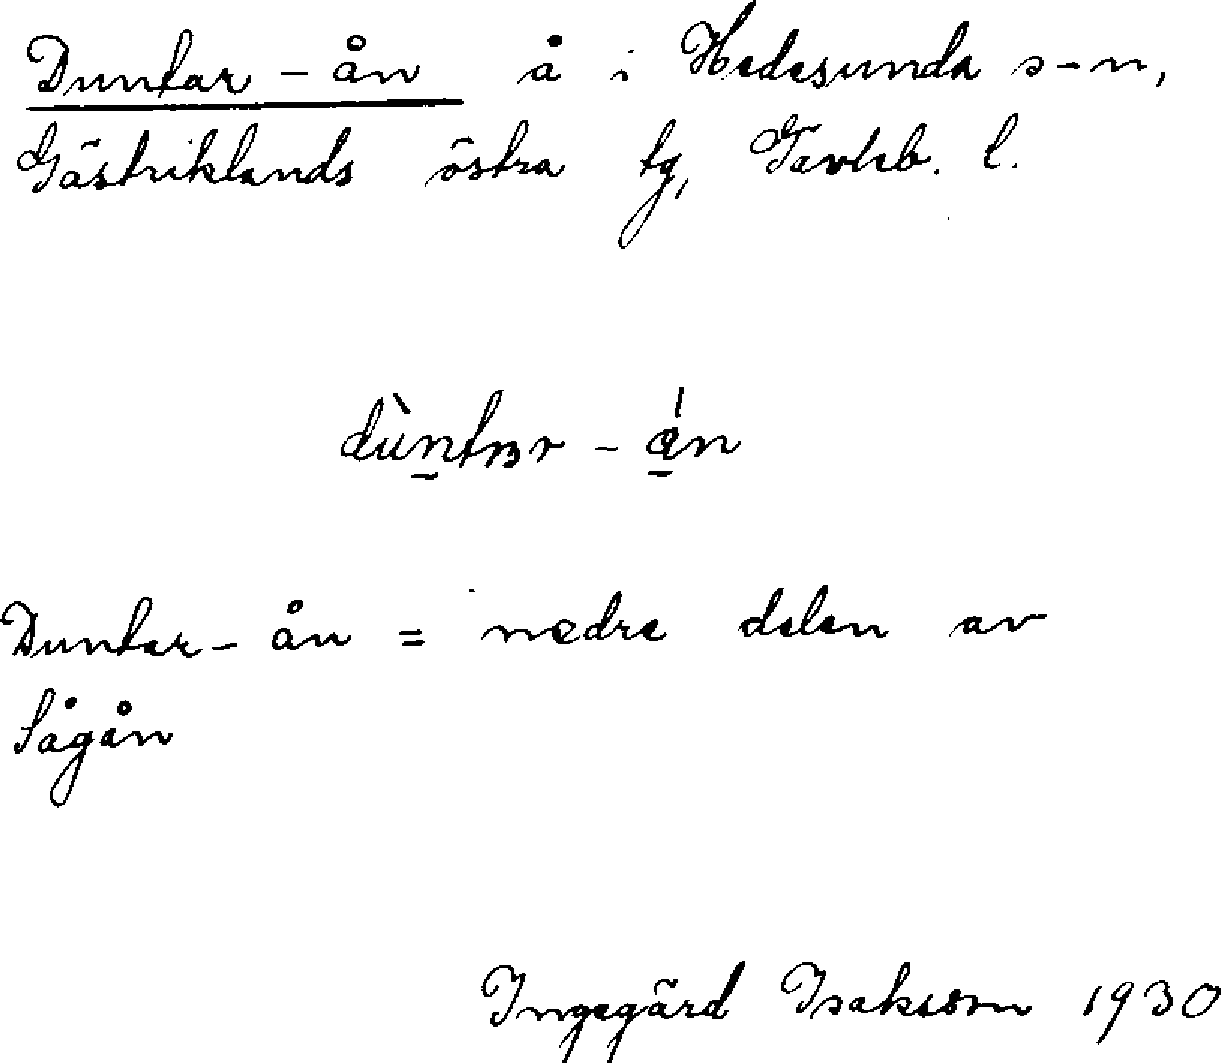 Duntar-ån å i Hedesunda s-n,
Gästriklands östra tg, Gävleb. l.
dùntar-án
Duntar-ån = nedre delen av
Sågån
Ingegärd Isaksson 1930